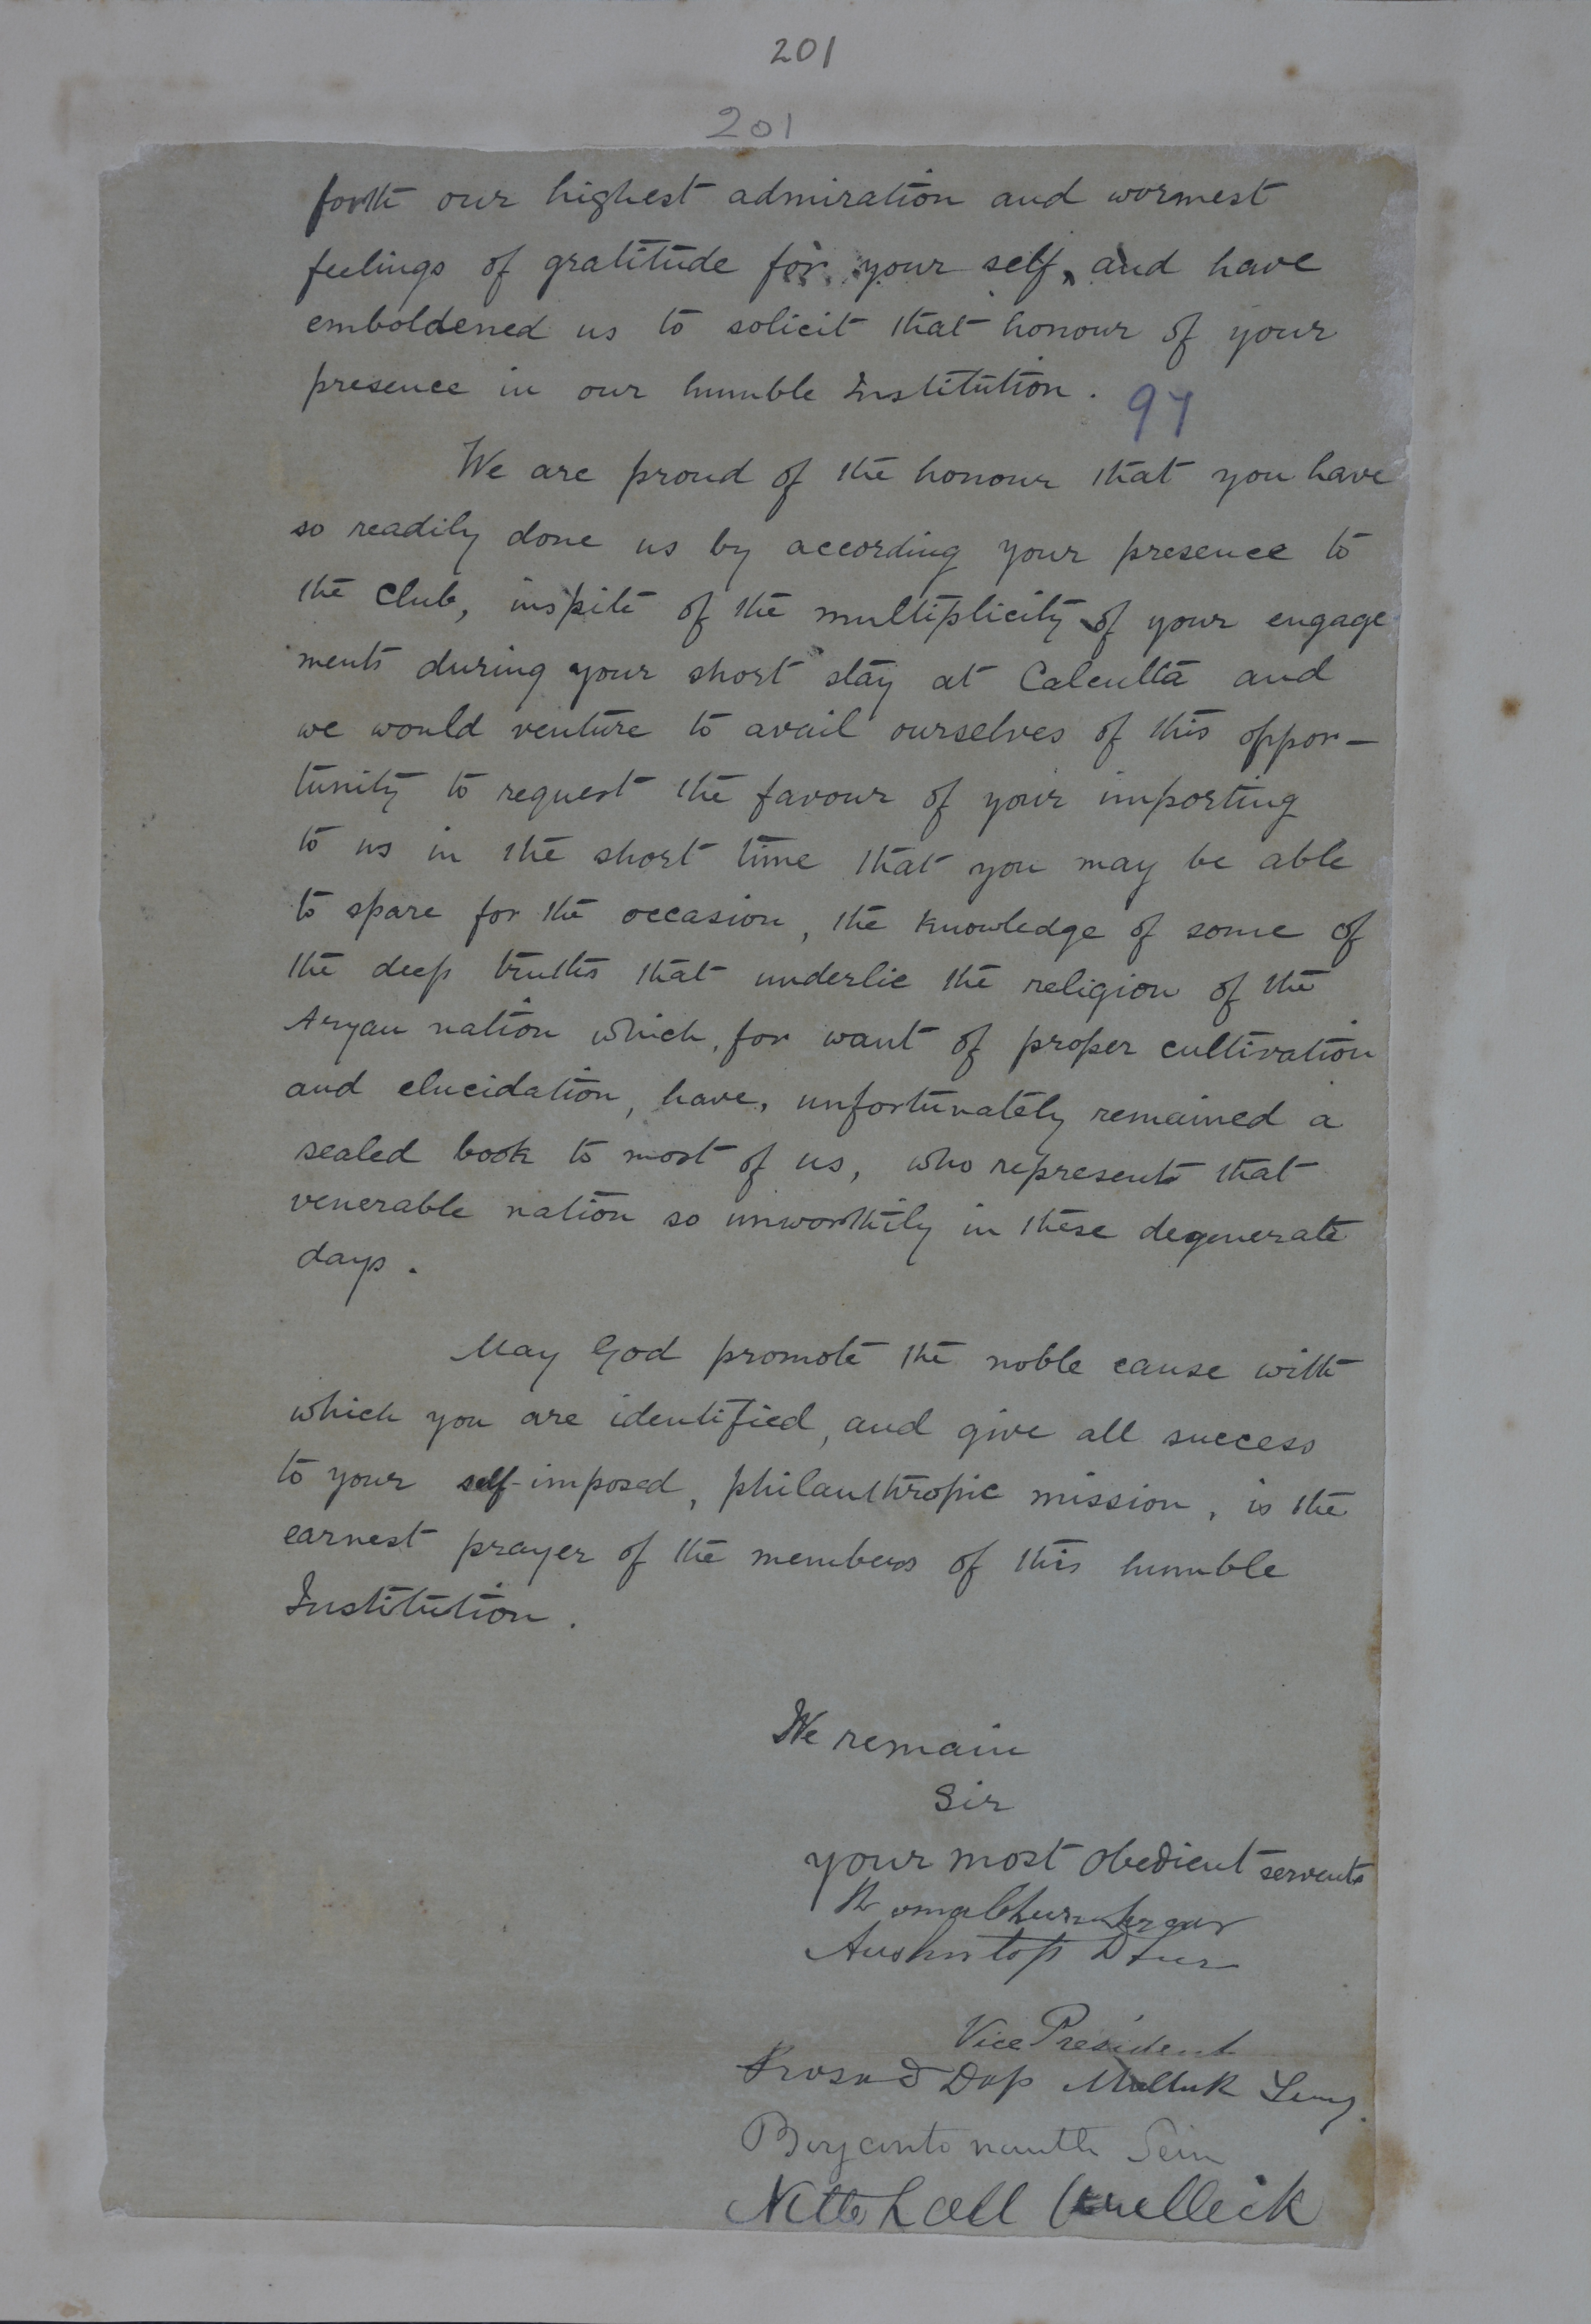 201
201
forth our highest admiration and warmest
feelings of gratitude for your self, and have
emboldened us to solicit that honour of your
presence in our humble Institution.
97
We are proud of the honour that you have
so readily done us by according your presence to
the Club, inspite of the multiplicity of your engage
ments during your short stay at Calcutta and
we would venture to avail ourselves of this oppor-
tunity to request the favour of your imparting
to us in the short time that you may be able
to spare for the occasion, the knowledge of some of
the deep truths that underlie the religion of the
Aryan nation which, for want of proper cultivation
and elucidation, have, unfortunately remained a
sealed book to most of us, who represents that
venerable nation so unworthily in these degenerate
days.
May God promote the noble cause with
which you are identified, and give all success
to your self-imposed, philanthropic mission, is the
earnest prayer of the members of this humble
Institution.
We remain
Sir
your most obedient servants
Aushutosh
Vice President
Prosad Das Mulluk
Boycanto nauth Sein
Netto Lall Mullick